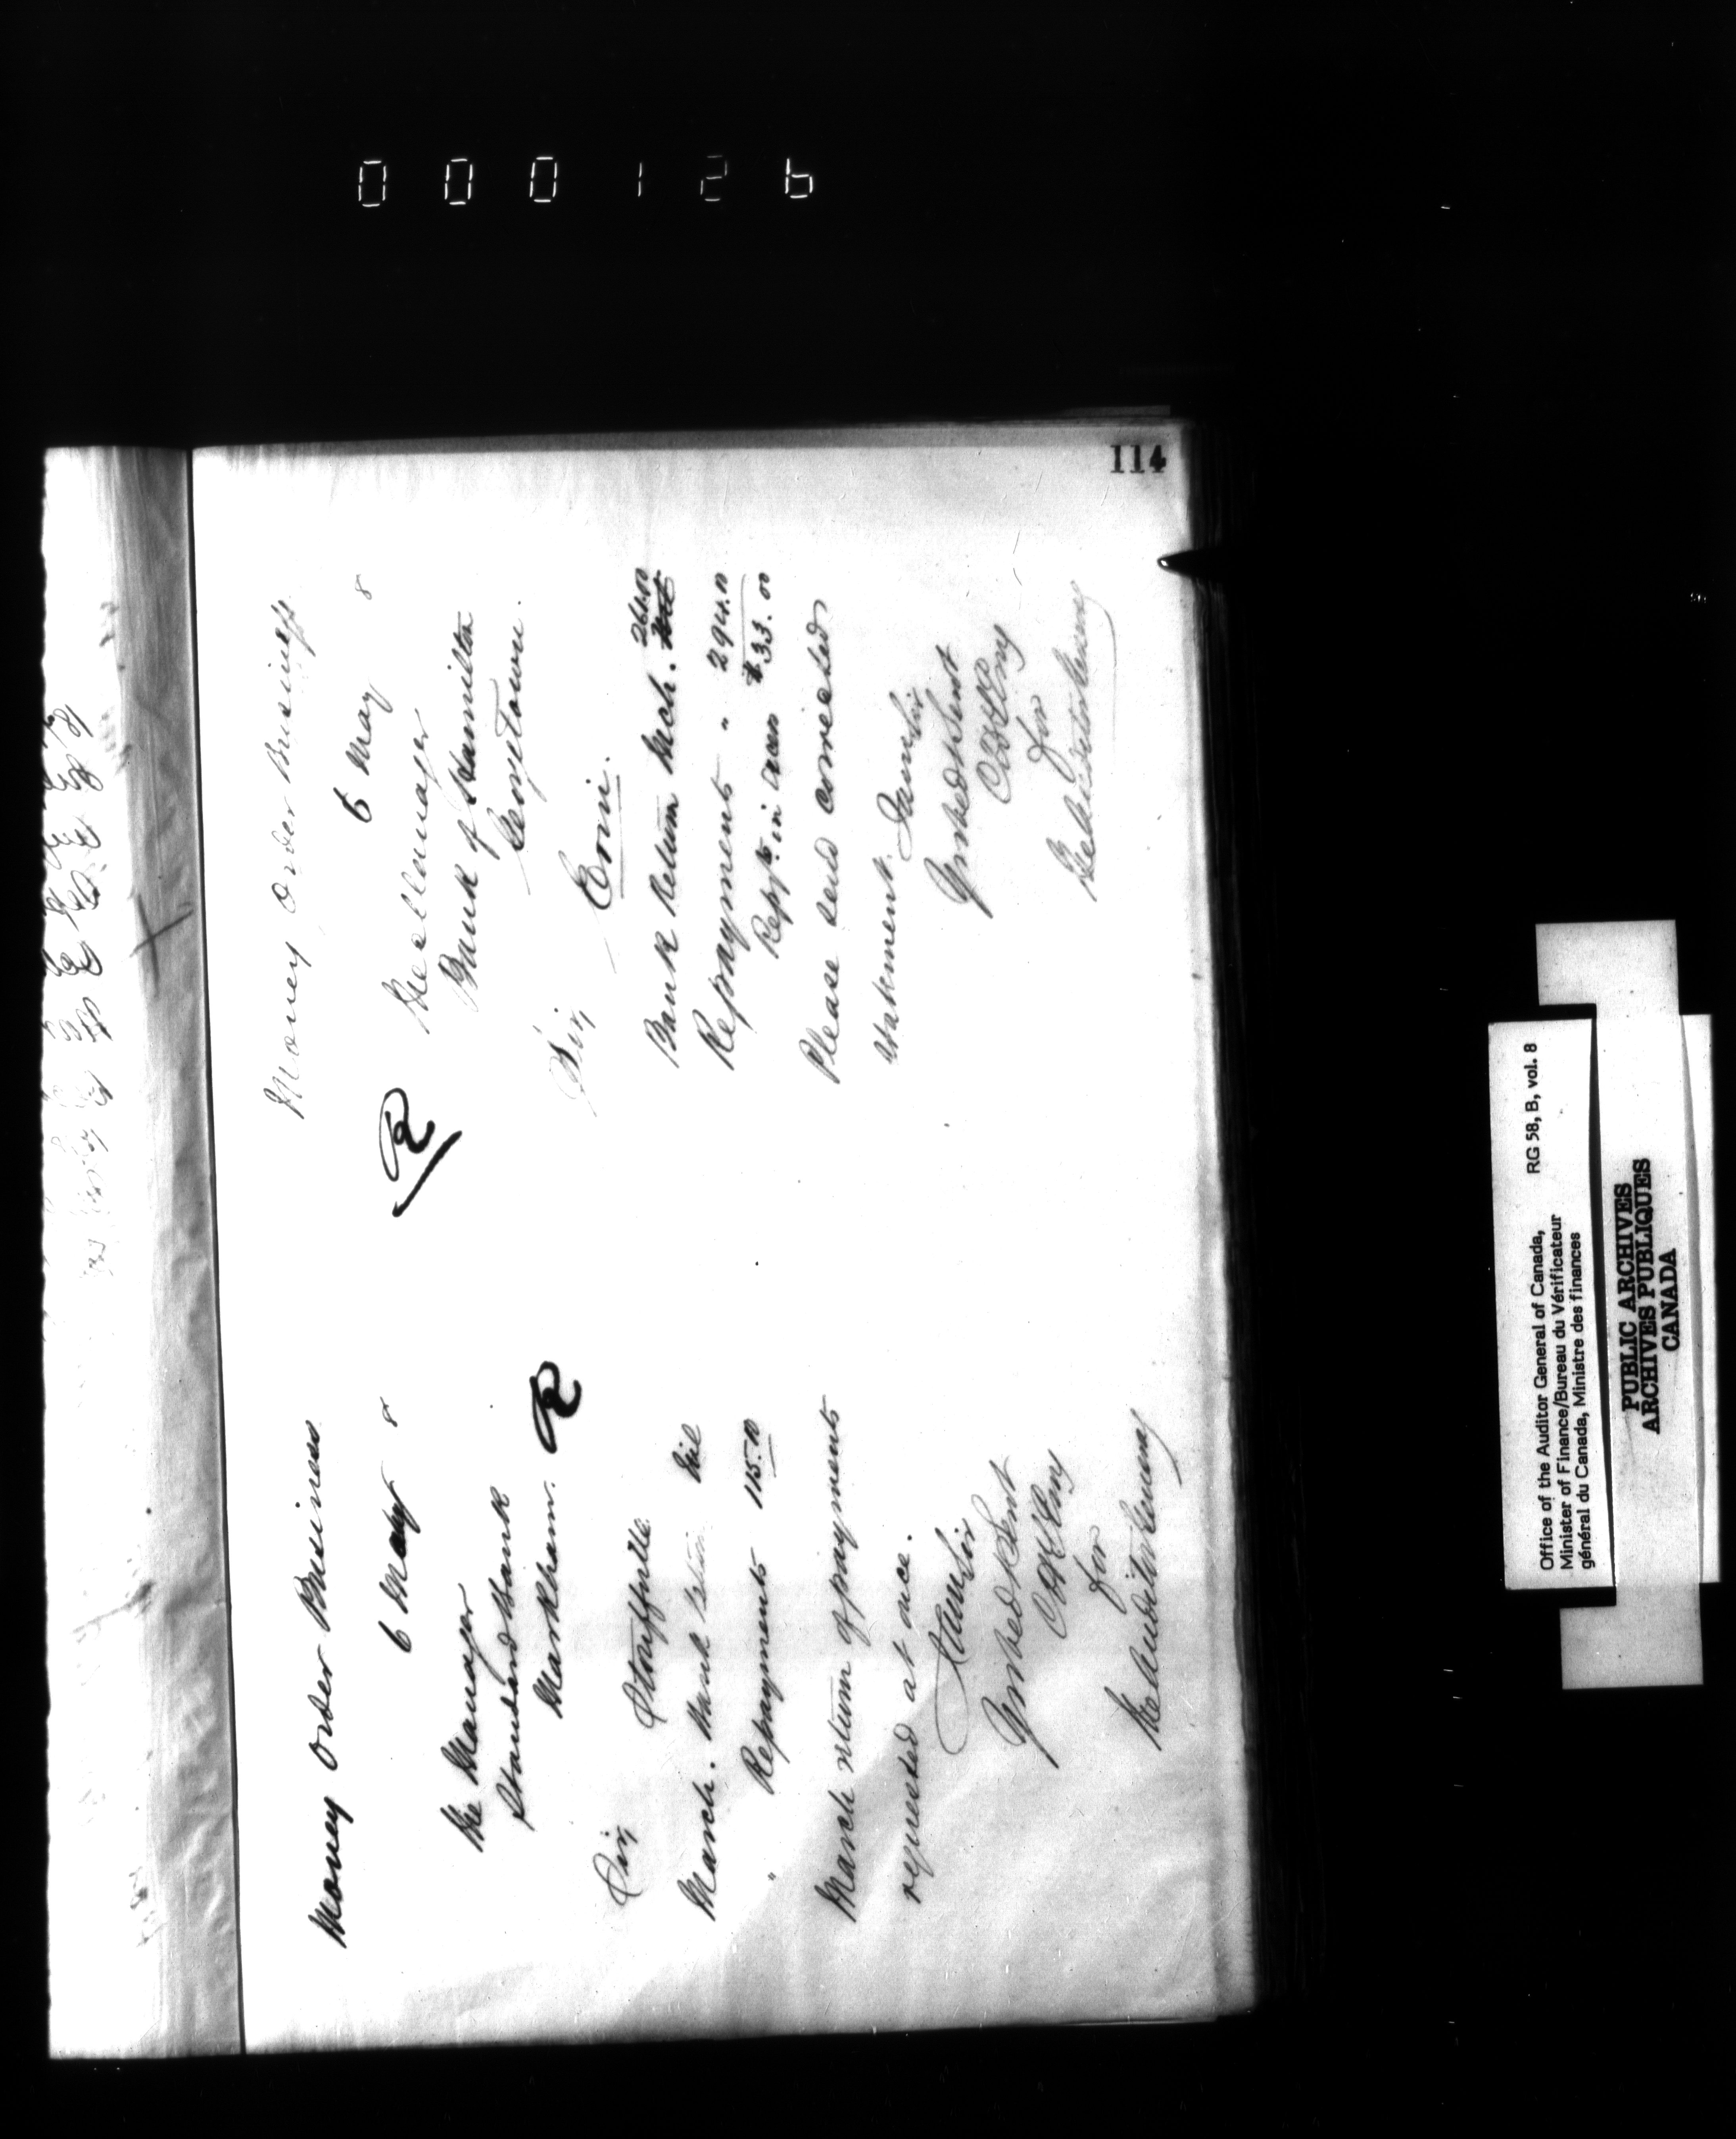 000126
114
Money Order Business
6 May 8
The Manager
Standard Bank
Markham.
R
Sir,
Stouffville.
March. Bank Return Nil
" Repayments 115.10
March return of payments
requested at once.
I am Sir
Yr obed Servt
for
Money Order Business
6 May 8
R
The Manager
Bank of Hamilton
Georgetown.
Sir,
Erin.
Bank Return Mch. 261.00
Repayments " 294.00
Repts. in acces $33.00
Please send corrected
statement. I am Sir
Yr obed Servt
for
Office of the Auditor General of Canada, RG 58, B, vol. 8
Minister of Finance/Bureau du Vérificateur
général du Canada, Ministre des finances
PUBLIC ARCHIVES
ARCHIVES PUBLIQUES
CANADA